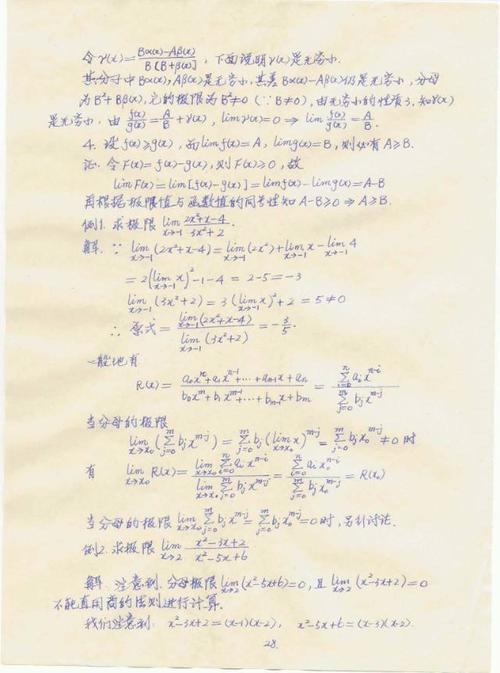 令γ(x)=\frac{Bα(x)-Aβ(x)}{B[B+β(x)]}, 下面说明γ(x)是无穷小.
其分子中Bα(x),Aβ(x)是无穷小,其差Bα(x)-Aβ(x)仍是无穷小,分母
为B²+Bβ(x),它的极限为B²≠0(∵B≠0),由无穷小的性质3,知γ(x)
是无穷小. 由\frac{f(x)}{g(x)}=\frac{A}{B}+γ(x), limγ(x)=0⇒lim\frac{f(x)}{g(x)}=\frac{A}{B}.
4. 设f(x)≥g(x),而limf(x)=A, limg(x)=B,则必有A≥B.
证. 令F(x)=f(x)-g(x),则F(x)≥0,故
limF(x)=lim[f(x)-g(x)]=limf(x)-limg(x)=A-B
再根据极限值与函数值的同号性知A-B≥0⇒A≥B.
例1.求极限\lim_{x→-1}\frac{2x²+x-4}{3x²+2}.
解. ∵ \lim_{x→-1}(2x²+x-4)=\lim_{x→-1}(2x²)+\lim_{x→-1}x-\lim_{x→-1}4
=2(\lim_{x→-1}x)²-1-4=2-5=-3
\lim_{x→-1}(3x²+2)=3(\lim_{x→-1}x)²+2=5≠0
∴ 原式=\frac{\lim_{x→-1}(2x²+x-4)}{\lim_{x→-1}(3x²+2)}=-\frac{3}{5}.
一般地有
R(x)=\frac{a_0x^n+a_1x^{n-1}+⋯+a_{n-1}x+a_n}{b_0x^m+b_1x^{m-1}+⋯+b_{m-1}x+b_m}=\frac{\sum_{i=0}^{n}a_ix^{n-i}}{\sum_{j=0}^{m}b_jx^{m-j}}
当分母的极限
\lim_{x→x_0}(\sum_{j=0}^{m}b_jx^{m-j})=\sum_{j=0}^{m}b_j(\lim_{x→x_0}x)^{m-j}=\sum_{j=0}^{m}b_jx_0^{m-j}≠0时
有 \lim_{x→x_0}R(x)=\frac{\lim_{x→x_0}\sum_{i=0}^{n}a_ix^{n-i}}{\lim_{x→x_0}\sum_{j=0}^{m}b_jx^{m-j}}=\frac{\sum_{i=0}^{n}a_ix_0^{n-i}}{\sum_{j=0}^{m}b_jx_0^{m-j}}=R(x_0)
当分母的极限\lim_{x→x_0}\sum_{j=0}^{m}b_jx^{m-j}=\sum_{j=0}^{m}b_jx_0^{m-j}=0时,另外讨论.
例2.求极限\lim_{x→2}\frac{x²-3x+2}{x²-5x+6}
解. 注意到.分母极限\lim_{x→2}(x²-5x+6)=0,且\lim_{x→2}(x²-3x+2)=0
不能直用商的法则进行计算.
我们注意到: x²-3x+2=(x-1)(x-2), x²-5x+6=(x-3)(x-2).
28.